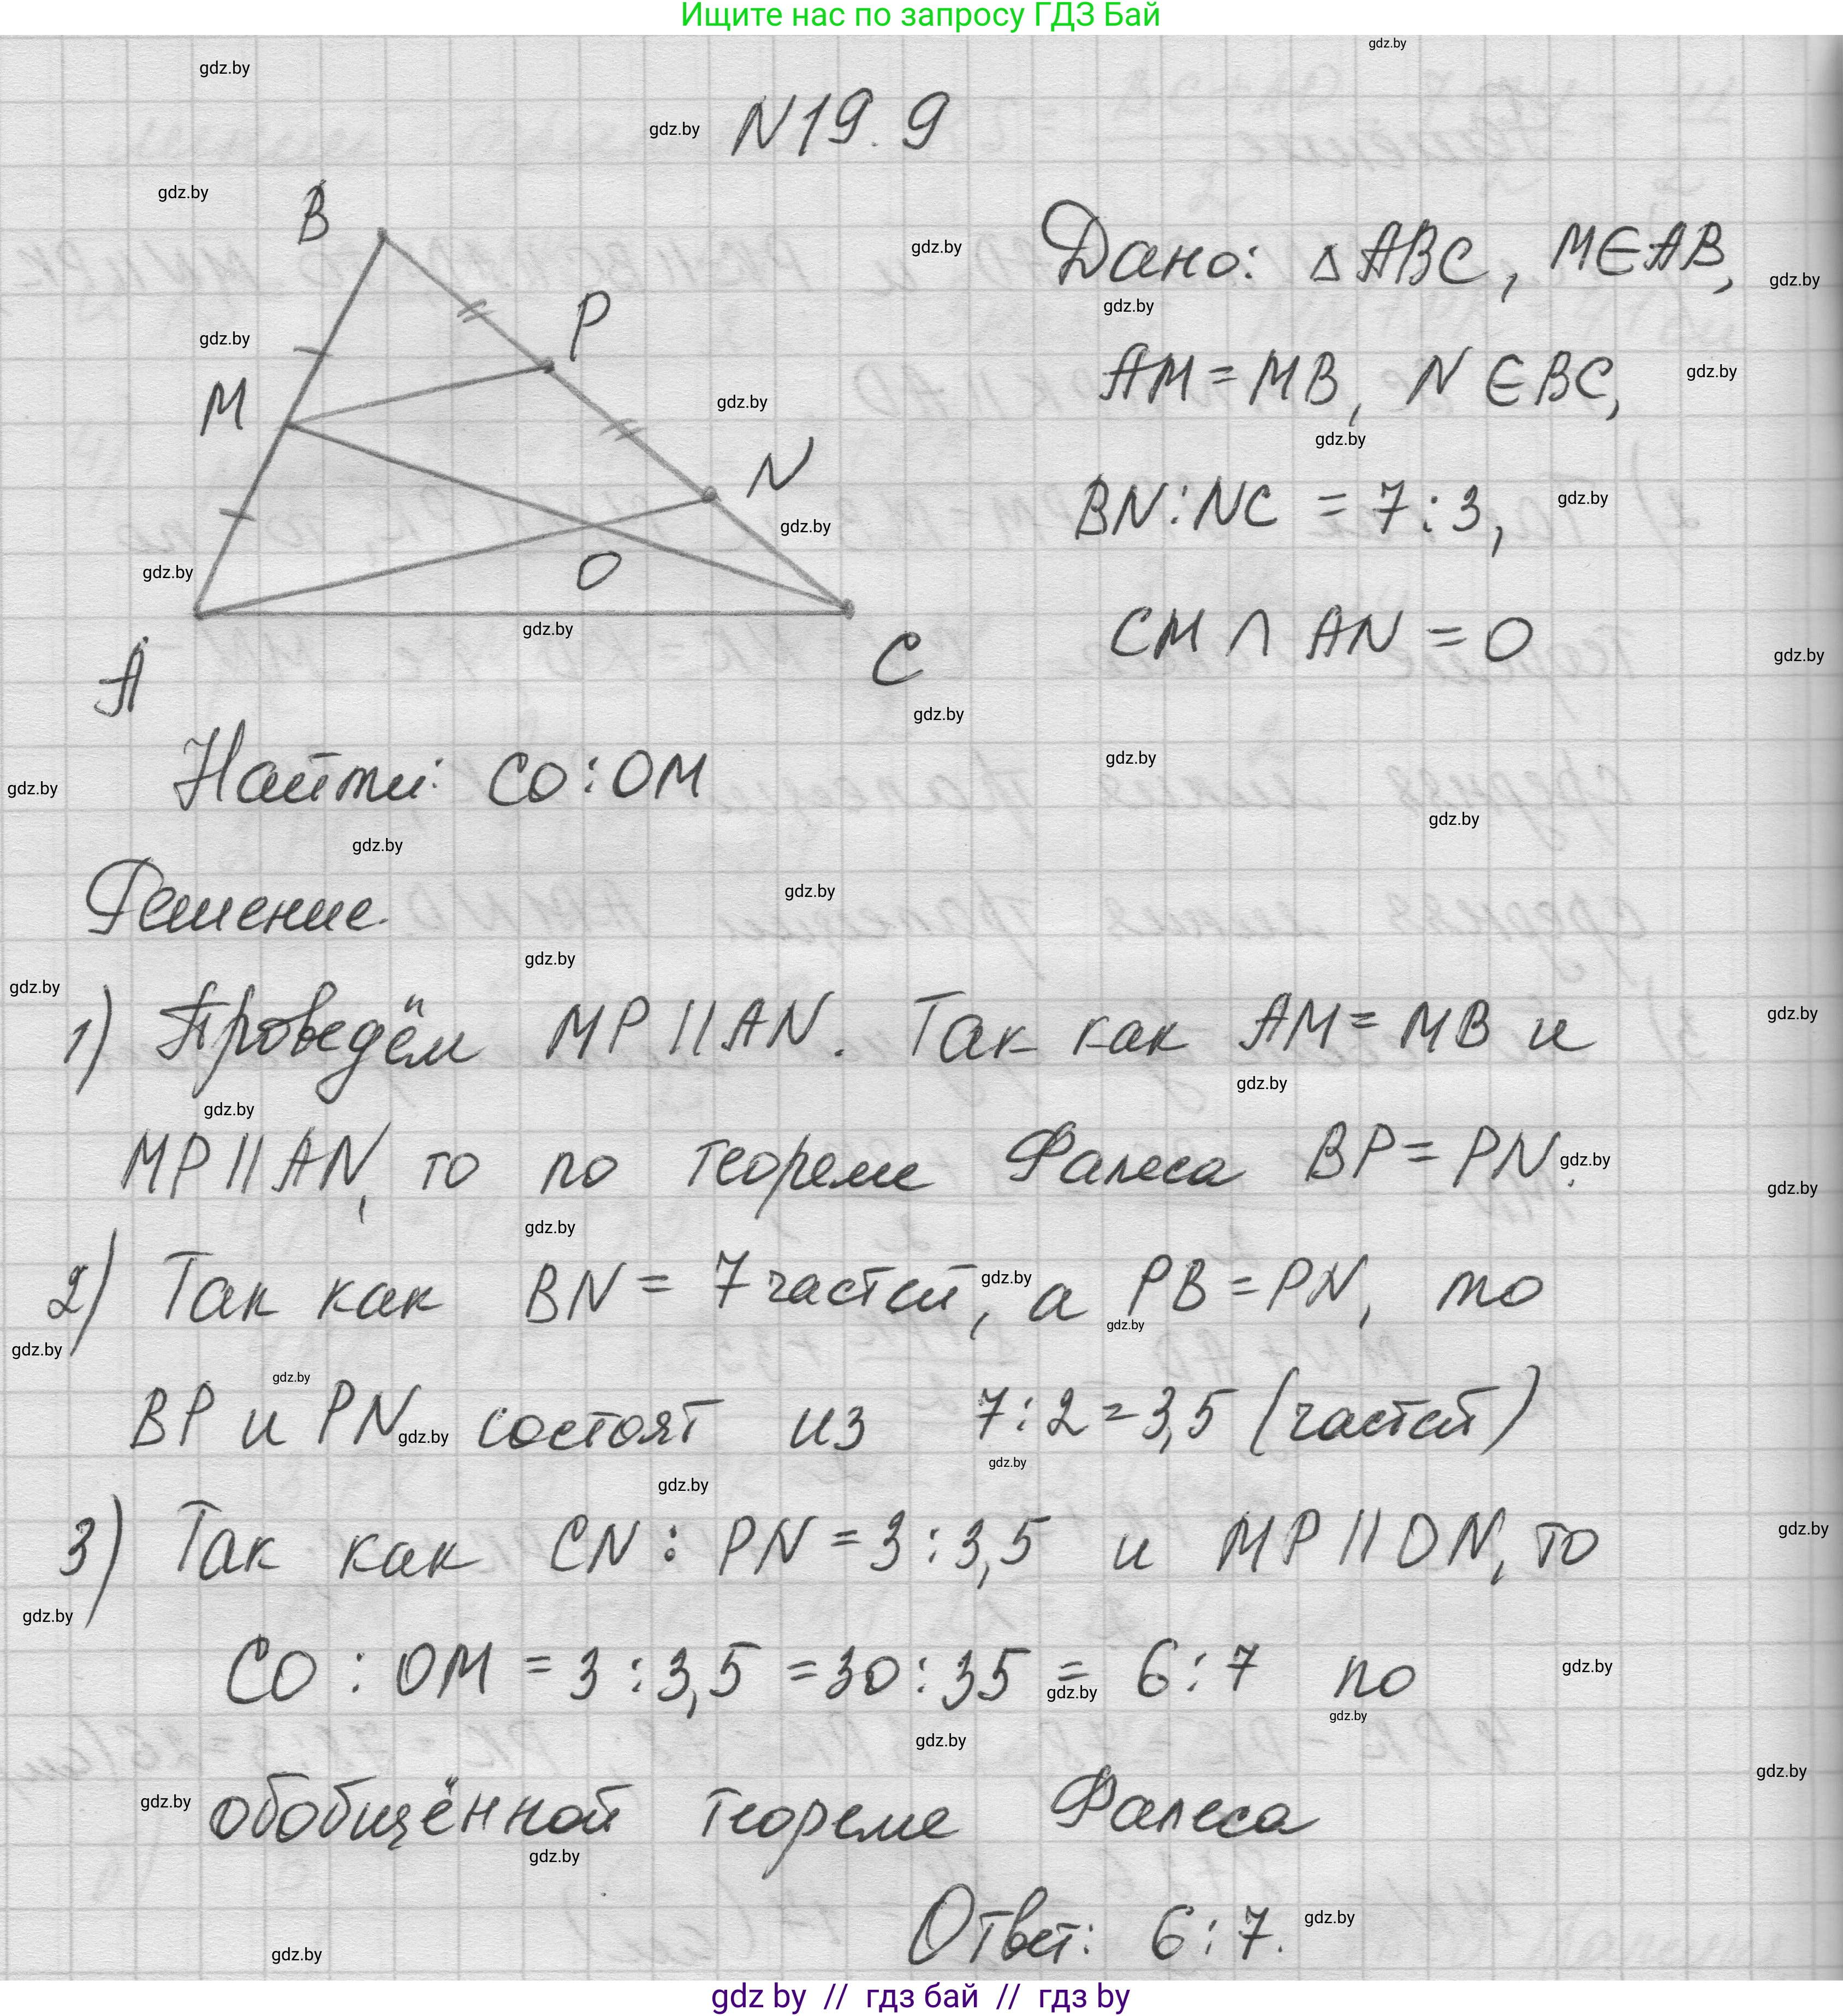 Ищите нас по запросу ГДЗ Бай
N19.9
Дано: △ABC, M∈AB,
AM=MB, N∈BC,
BN:NC = 7:3,
CM ∩ AN = O
B
P
M
N
O
A
C
Найти: CO:OM
Решение
1) Проведём MP||AN. Так как AM=MB и
MP||AN, то по теореме Фалеса BP=PN.
2) Так как BN = 7 частей, а PB=PN, то
BP и PN состоят из 7:2=3,5 (частей)
3) Так как CN : PN = 3:3,5 и MP||ON, то
CO : OM = 3:3,5 = 30:35 = 6:7 по
обобщённой теореме Фалеса
Ответ: 6:7.
gdz by // гдз бай // гдз by